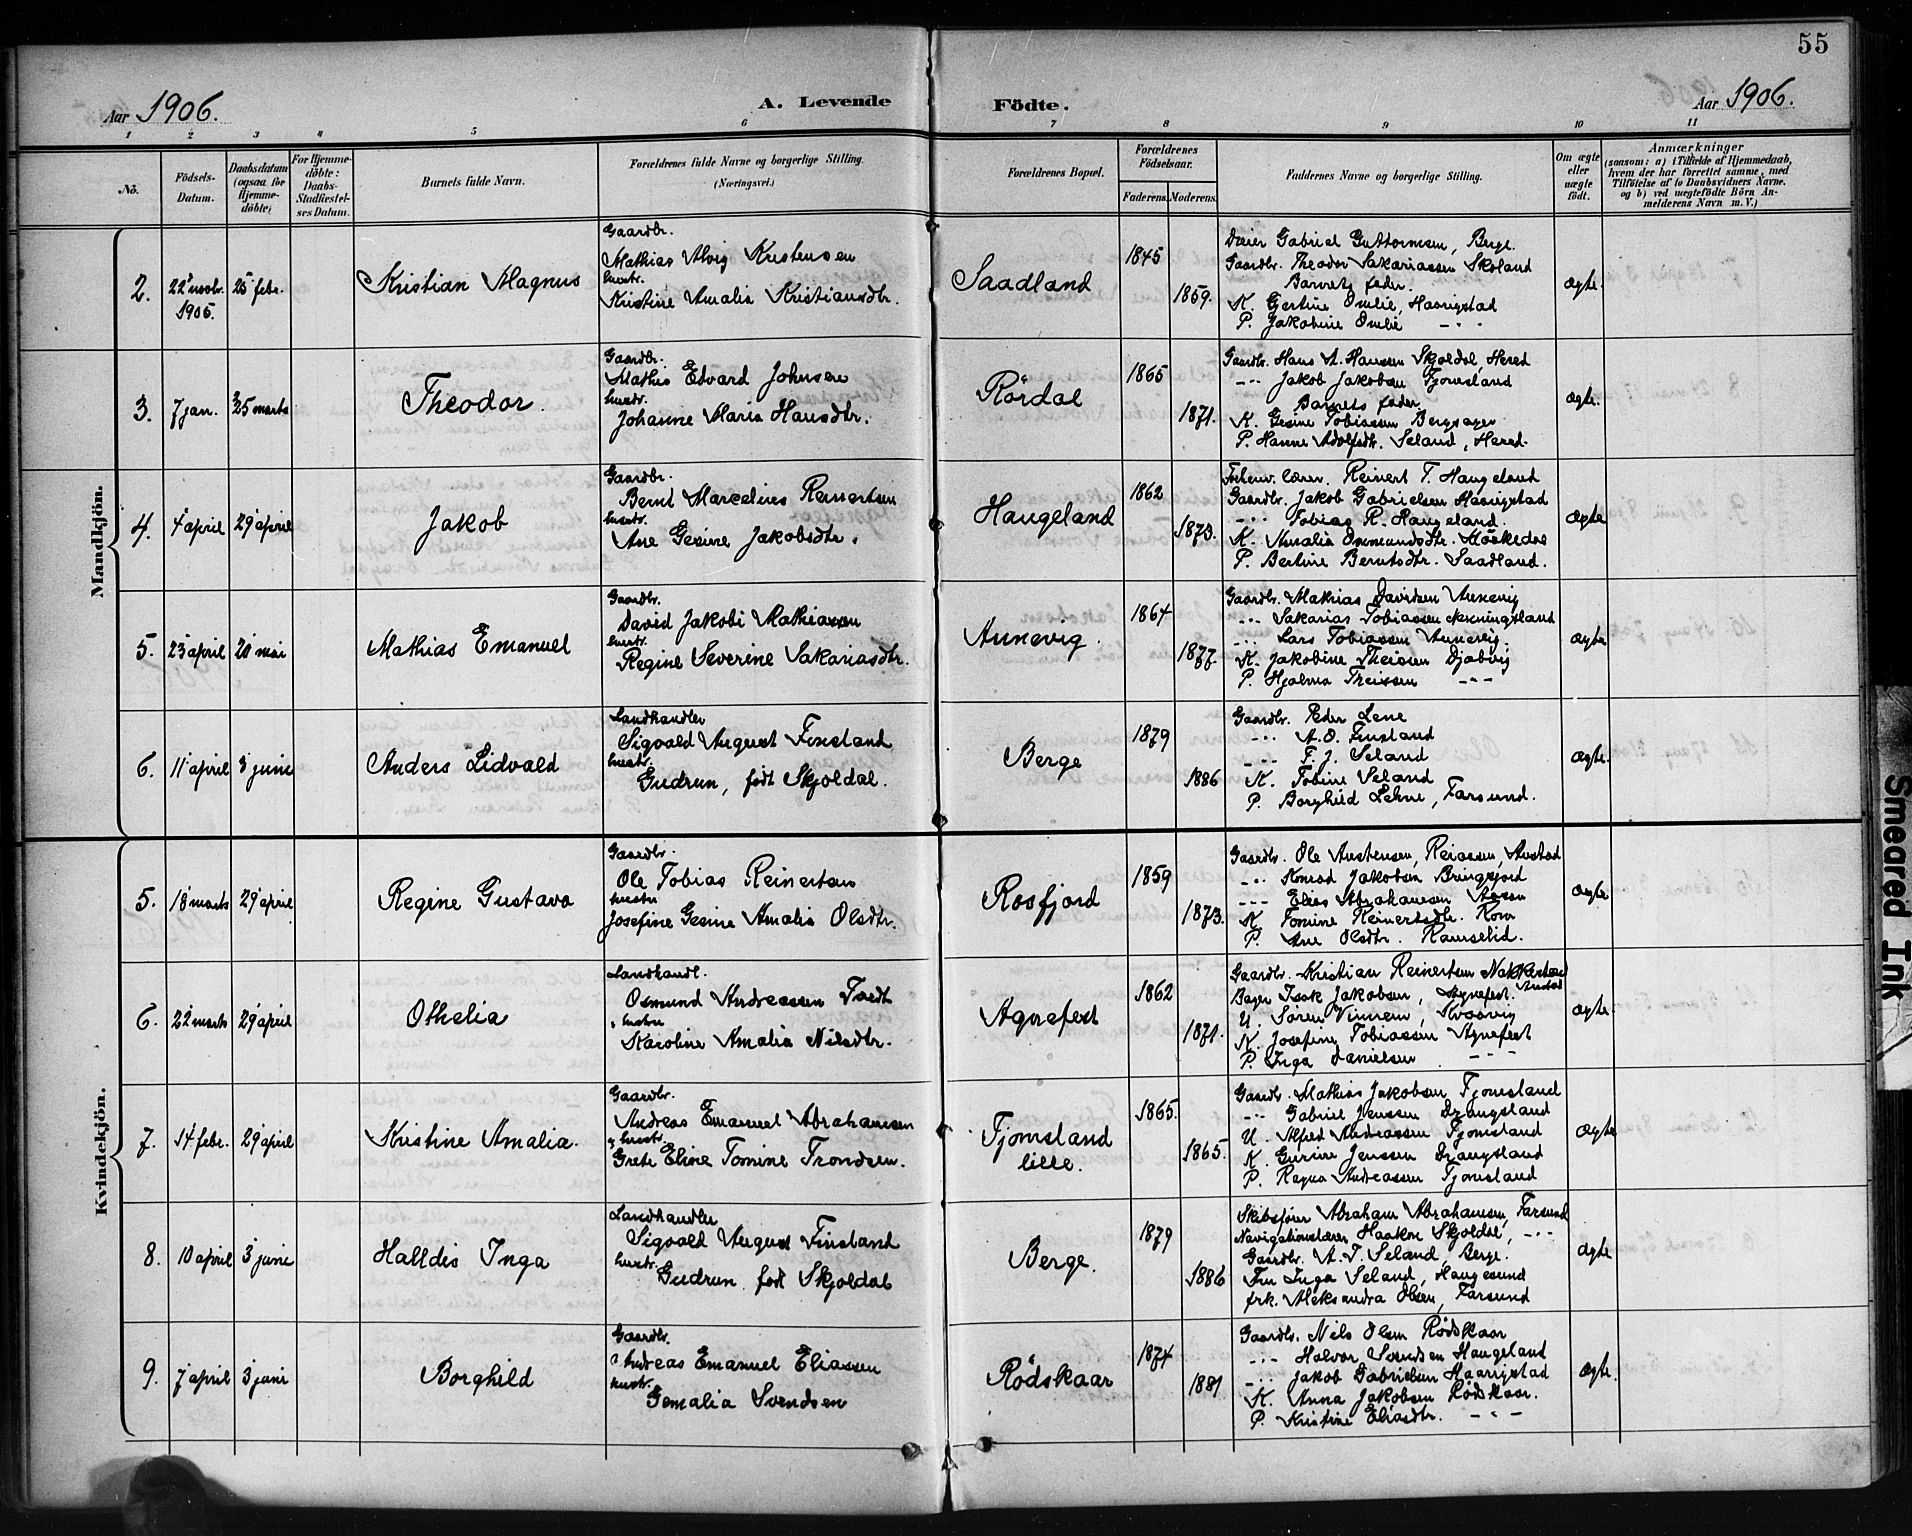 55
Aar 1906.
A. Levende
Födte.
Aar 1906.
1 2 3 4 5 6 7 8 9 10 11
No.
Födsels-
Datum.
Daabsdatum
(ogsaa for
Hjemme-
döbte)
For Hjemme-
döbte:
Daabs-
Stadfæstel-
ses Datum.
Barnets fulde Navn.
Forældrenes fulde Navne og borgerlige Stilling.
(Næringsvei.)
Forældrenes Bopæl.
Forældrenes
Födselsaar.
Faderens. Moderens.
Faddernes Navne og borgerlige Stilling.
Om ægte
eller
uægte
födt.
Anmærkninger
(saasom: a) i Tilfælde af Hjemmedaab,
hvem der har forrettet samme, med
Tilföielse af to Daabsvidners Navne,
og b) ved uægtefödte Börn An-
melderens Navn m. V.)
Mandkjön.
2.
22 novbr.
1905.
25 febr.
Kristian Magnus
Gaardbr.
Mathias Alvig Kristensen
hustr.
Kristine Amalia Kristiansdtr.
Saadland
1845
1859.
Gabriel Guttormsen, Berge.
Gaardbr. Theodor Sakariassen Skoland
Barnets fader.
K. Gjertine Omlie, Haarigstad
P. Jakobine Omlie - " -
ægte.
3.
7 jan.
25 marts
Theodor.
Gaardbr.
Mathis Edvard Johnsen
hustr.
Johanne Maria Hansdtr.
Rördal
1865
1871.
Gaardbr. Hans A. Hansen Skjoldal, Hered
- " - Jakob Jakobsen Fjomsland
Barnets fader
K. Gesine Tobiassen Bergsager
P. Hanne Adolfsdtr. Seland, Hered.
ægte.
4.
4 april
29 april
Jakob
Gaardbr.
Bernt Marcelius Reinertsen
hustr.
Ane Gesine Jakobsdtr.
Haugeland
1862
1873.
lærer. Reinert T. Haugeland
Gaardbr. Jakob Gabrielsen Haarigstad
- " - Tobias R. Haugeland.
K. Amalia Osmundsdtr.
P. Bertine Berntsdtr. Saadland.
ægte
5.
23 april
20 mai
Mathias Emanuel
Gaardbr.
David Jakobi Mathiassen
hustr.
Regine Severine Sakariasdtr.
Aunevig.
1864
1877
Gaardbr. Mathias Davidsen Aunevig
- " - Sakarias Tobiassen
- " - Lars Tobiassen Aunevig.
K. Jakobine Theisen Djubvig
P. Hjalma Theisen - " -
ægte
6.
11 april
3 june
Anders Lidvald
Landhandler
Sigvald August Finsland
hustr.
Gudrun, födt Skjoldal.
Berge
1879
1886
Gaardbr. Peder Lene
- " - A. O. Finsland
- " - F. J. Seland
K. Tobine Seland
P. Borghild Lehne, Farsund.
ægte.
Kvindekjön.
5.
18 marts
29 april
Regine Gustava
Gaardbr.
Ole Tobias Reinertsen
hustru
Josefine Gesine Amalia Olsdtr.
Rosfjord
1859
1873.
Gaardbr. Ole Austensen, Austad
- " - Konrad Jakobsen Bringsjord
- " - Elias Abrahamsen
K. Tomine Reinertsdtr. Rom
P. Ane Olsdtr. Ramselid.
ægte
6.
22 marts
29 april
Othelia
Landhandl.
Osmund Andreassen Tvedt
hustru
Karoline Amalia Nilsdtr.
Agnefest
1862
1871.
Gaardbr. Kristian Reinertsen Nakkestad
Austad
Bager Isak Jakobsen, Agnefest.
U. Sören Vinnem,
K. Josefine Tobiassen Agnefest
P. Inga Danielsen - " -
ægte.
7.
14 febr.
29 april
Kristine Amalia.
Gaardbr.
Andreas Emanuel Abrahamsen
hustr.
Grete Eline Tomine Trondsen.
Fjomsland
lille.
1865.
1865.
Gaardbr. Mathias Jakobsen Fjomsland
- " - Gabriel Jenssen Drangsland
U. Alfred Andreassen Fjomsland
K. Gurine Jenssen Drangsland
P. Ragna Andreassen Fjomsland
ægte
8.
10 april
3 june
Halldis Inga
Landhandler
Sigvald August Finsland
hustr.
Gudrun födt Skjoldal
Berge.
1879
1886
Skibsförer Abraham Abrahamsen, Farsund
Navigationslærer Haakon Skjoldal, - " -
Gaardbr. A. T. Seland, Berge.
Fru Inga Seland, Haugesund
frk. Aleksandra Olsen, Farsund
ægte.
9.
7 april
3 juni
Borghild
Gaardbr.
Andreas Emanuel Eliassen
hustr.
Gemalia Svendsen
Rödskaar
1874
1881
Gaardbr. Nils Olsen Rödskaar
- " - Halvor Svendsen Haugeland
- " - Jakob Gabrielsen Haarigstad
K. Anna Jakobsen Rödskaar.
P. Kristine Eliasdtr. - " -
ægte.
Smeared Ink